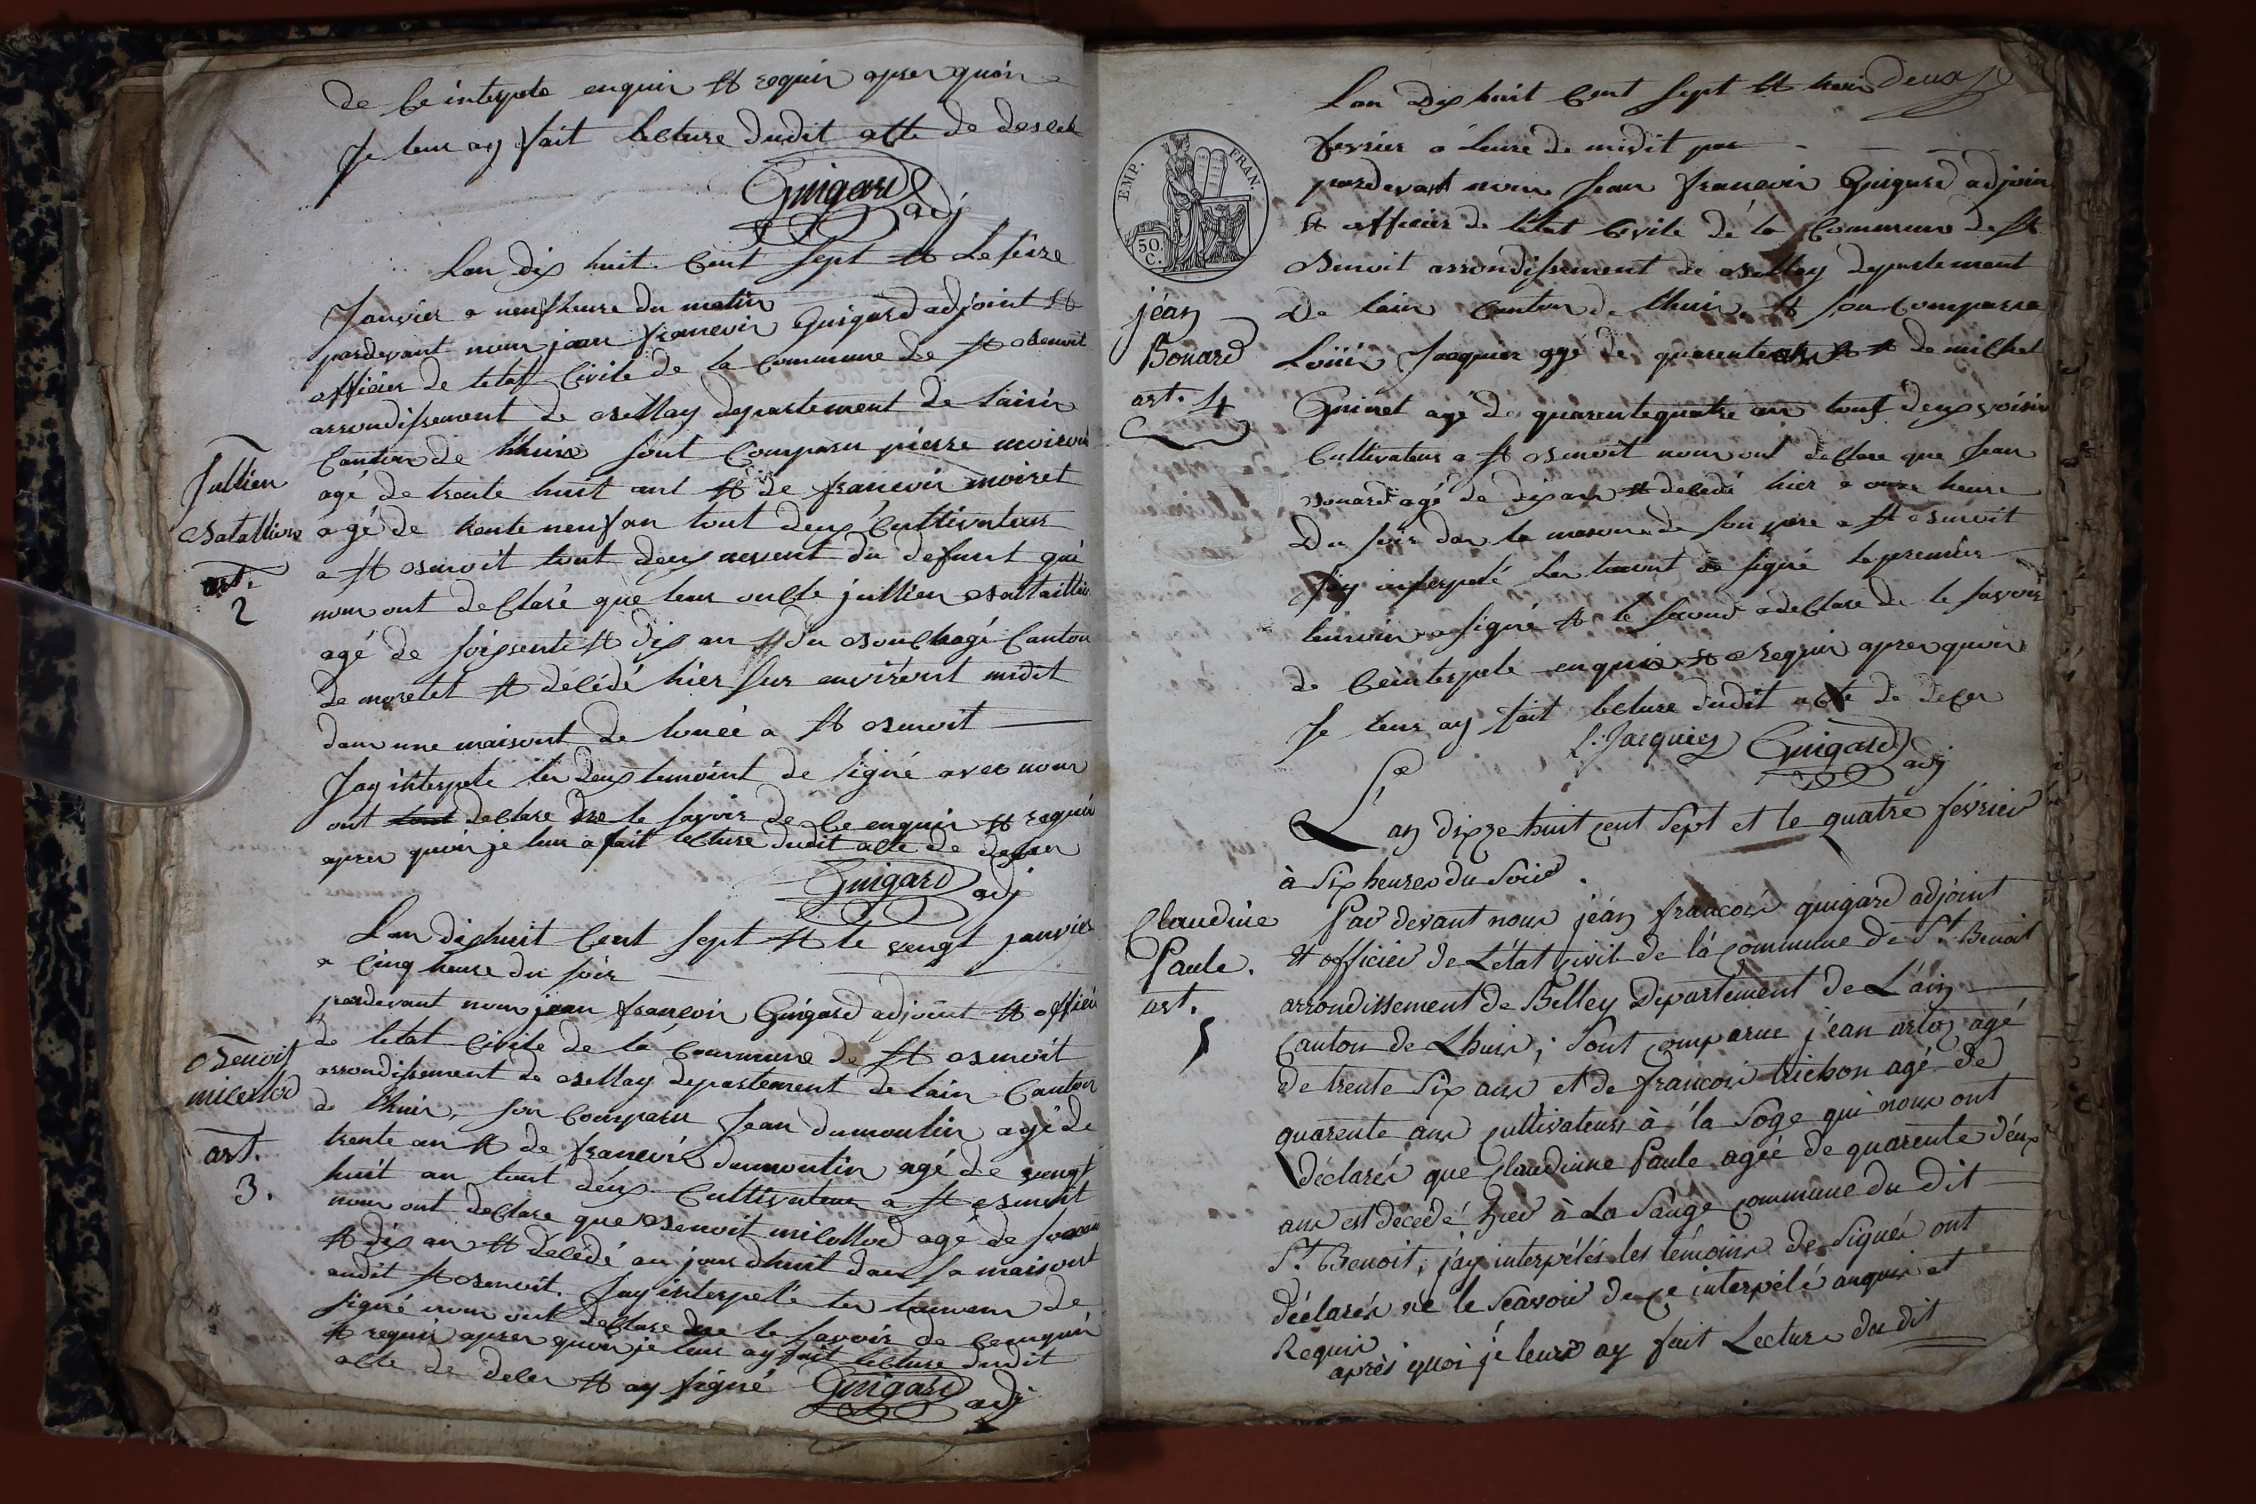 de Ce interpele enquir et requir aprer quoir
Je leur ay fait lecture dudit atte de deseder
Guigard adj
Lan dix huit Cent Sept et Le seize
Janvier a neuf heure du matin
pardevant nour jean francoir Guigard adjoint et
officier de letat Civile de la Commune de St Benoit
arrondissement de Bellay departement de lainr
Canton de lhuir sont Comparu pierre
agé de trente huit ant et de francoir moiret
agé de trente neuf an tout deux Cultivateur
a St Benoit tout deux nevent du defunt qui
nour ont declaré que leur oncle jullien Battallier
agé de soixente et dix an du Bouchage Canton
de morestel et décédé hier sur envirent midit
dans une maisont de louée a St Benoit
Jay interpele ler deux temoint de signé avec nour
ont declare ne le savoir de Ce enquir et requir
aprer quoir je leur a fait lecture dudit atte de deser
Guigard adj
Jullien
Batallion
art.
2
Lan dixhuit Cent Sept et le vengt janvier
a Cinq heure du soir
pardevant nour jean francoir Guigard adjoint et officier
de letat Civile de la Commune de St Benoit
arrondissement de Bellay departement de lain Canton
de lhuir, son Comparu Jean dumoulin agé de
trente an et de francoir dumoulin agé de vengt
huit an tout deux Cultivateur a St Benoit
nour ont declare que Benoit milolliod agé de
et dix an et décédé au jourdhuit dans sa maisont
audit St Benoit. Jay interpelé ler temoin de
signé nour ont declare ne le savoir de Ce enquir
et requir aprer quoir je leur ay fait lecture dudit
atte de deser et ay signé Guigard adj
Benoit
milolliod
art.
3.
Lan Dix huit Cent Sept et hier deux
fevrier a leure de midit par
pardevant nour Jean francoir Guigard adjoin
et officier de letat Civile de la Commune de St
Benoit arrondissement de Bellay departement
De lain Canton de lhuir, et son Comparu
Loüir Jaquier agé de quarente et de michel
Guinet agé de quarentequatre an tout deux voisin
Cultivateur a St Benoit nour ont declare que Jean
Bonard agé de dix an et décédé hier a onze heure
Du soir dans la maison de son pere a St Benoit
Jay interpelé ler temoint de signé le premier
temoin a signé et le second a declare de le savoir
de Ce interpele enquir et requir aprer quoir
Je leur ay fait lecture dudit acte de deser
L. Jacquier Guigard adj
EMP. FRAN.
50. C.
jéan
Bonard
art. 4
L'an dixze huit cent Sept et le quatre février
à Six heures du Soir.
Par devant nous jéan francois guigard adjoint
et officier de L'état civil de la Commune de St Benoit
arrondissement de Belley Département de L'ain
Canton de Lhuis; Sont comparue jéan arloz agé
de trente Six ans et de françois trichon agé de
quarente ans cultivateurs à la Soge qui nous ont
déclarés que Claudinne Paule agée de quarente deux
ans est décédé hier à La Sauge commune du dit
St Benoit, j'ay interpélés les témoins de Signér ont
déclarés ne le Scavoir de Ce interpélé anquis et
Requis
après quoi jé leurs ay fait Lecture du dit
Claudine
Paule.
art.
5